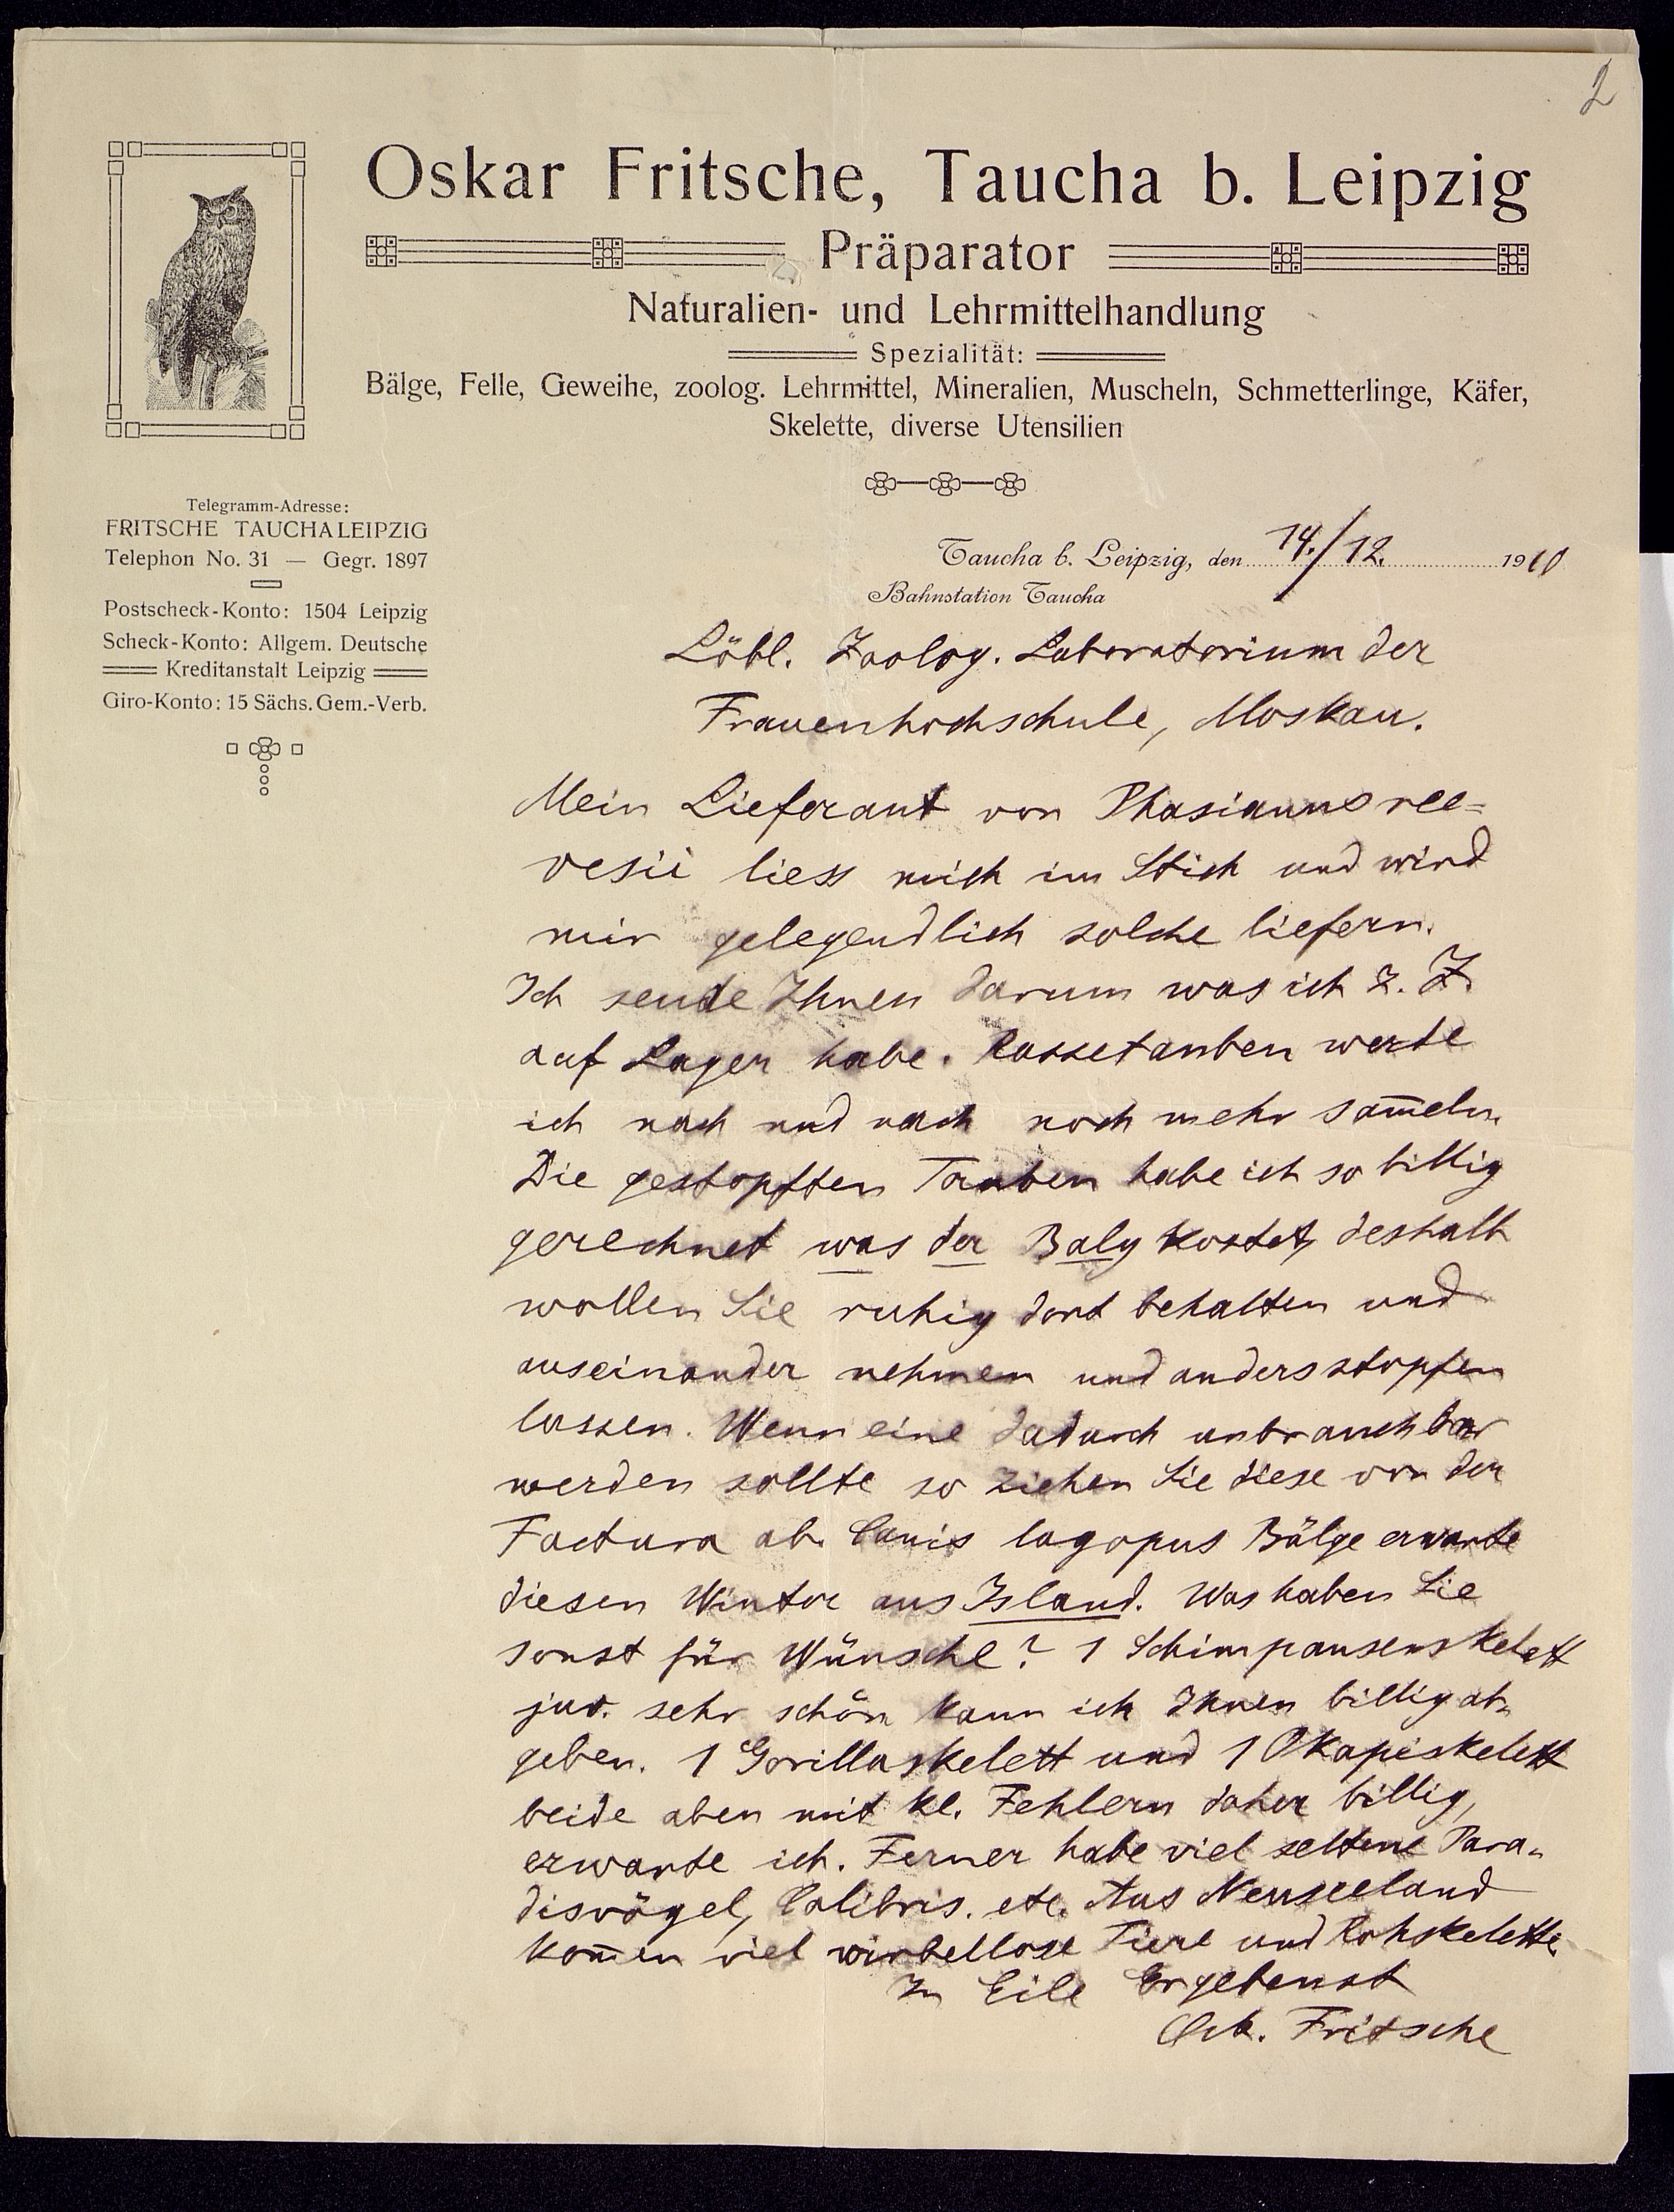 2
Oskar Fritsche, Taucha b. Leipzig
Präparator
Naturalien- und Lehrmittelhandlung
Spezialität:
Bälge, Felle, Geweihe, zoolog. Lehrmittel, Mineralien, Muscheln, Schmetterlinge, Käfer,
Skelette, diverse Utensilien
Telegramm-Adresse:
FRITSCHE TAUCHALEIPZIG
Telephon No. 31 — Gegr. 1897
Postscheck-Konto: 1504 Leipzig
Scheck-Konto: Allgem. Deutsche
Kreditanstalt Leipzig
Giro-Konto: 15 Sächs. Gem.-Verb.
Taucha b. Leipzig, den 14./12. 1910
Bahnstation Taucha
Löbl. Zoolog. Laboratorium der
Frauenhochschule, Moskau.
Mein Lieferant von Phasianus ree=
vesii liess mich im Stich und wird
mir gelegendlich solche liefern.
Ich sende Ihnen darum was ich z. Z.
auf Lager habe. Rassetauben werde
ich nach und nach noch mehr sam̅eln.
Die gestopften Tauben habe ich so billig
gerechnet was der Balg kostet, deshalb
wollen Sie ruhig dort behalten und
auseinander nehmen und anders stopfen
lassen. Wenn eine dadurch unbrauchbar
werden sollte so ziehen Sie diese von der
Factura ab. Canis lagopus Bälge erwarte
diesen Winter aus Island. Was haben Sie
sonst für Wünsche? 1 Schimpansenskelett
juv. sehr schön kann ich Ihnen billig ab-
geben. 1 Gorillaskelett und 1 Okapiskelett
beide aber mit kl. Fehlern daher billig,
erwarte ich. Ferner habe viel seltene Para-
disvögel, Colibris. etc. Aus Neuseeland
kom̅en viel wirbellose Tiere und Rohskelette.
In Eile Ergebenst
Osk. Fritsche